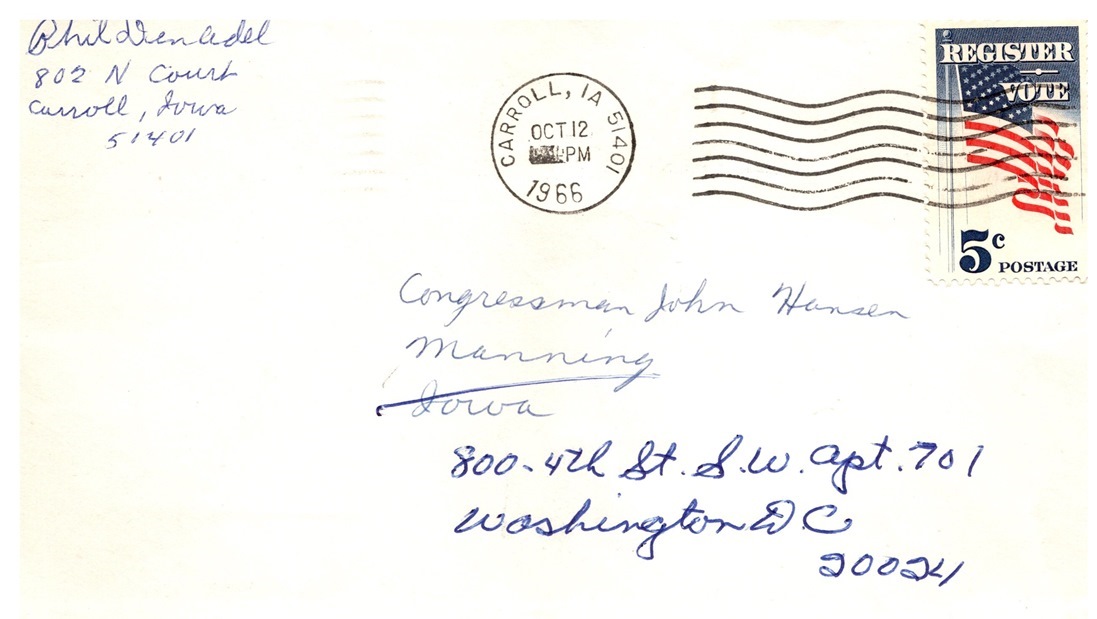 Phil
802 N Court
Carroll, Iowa
51401
CARROLL, IA 51401
OCT 12
PM
1966
REGISTER
VOTE
5c
POSTAGE
Congressman John Hansen
Manning
Iowa
800-4th St. S.W. Apt. 701
Washington D C
20024